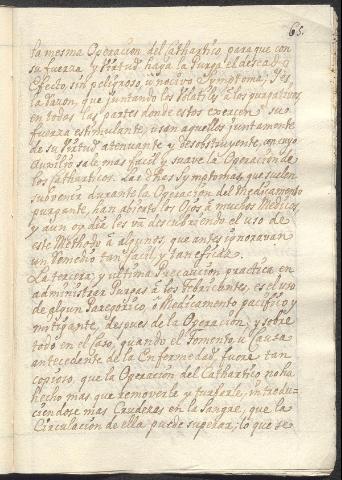 65.
la mesma Operacion del Cathartico, para que con
su fuerza, y Virtud haga la Purga el deseado
Efecto, sin peligroso, ù nocivo Symptoma; y es
la razon, que juntando los Volatiles à los purgativos,
en todas las partes donde estos exercen su
fuerza estimulante, usan aquellos juntamente
de su Virtud atenuante y desobstruyente, con cuyo
Auxilio sale mas facil y suave la Operacion de
los Catharticos. Las dhas Symptomas, que suelen
subvenir durante la Operacion del Medicamento
purgante, han abierto los Ojos à muchos Medicos,
y aun oy dia les va descubriendo el uso de
este Methodo à algunos, que antes ignoravan
un Remedio tan facil, y tan eficaz.
La tercera, y ultima Precaucion practica en
administrar Purgas à los Febricantes, es el uso
de algun Paregorico, ò Medicamento pacifico, y
mitigante, despues de la Operacion, y sobre
todo en el caso, quando el Fomento, ù Causa
antecedente de la Enfermedad, fuere tan
copioso, que la Operacion del Cathartico no ha
hecho mas que removerle y turbarle, introdu-
ciendose mas Crudezas en la Sangre, que la
Circulacion de ella puede superar; lo que se